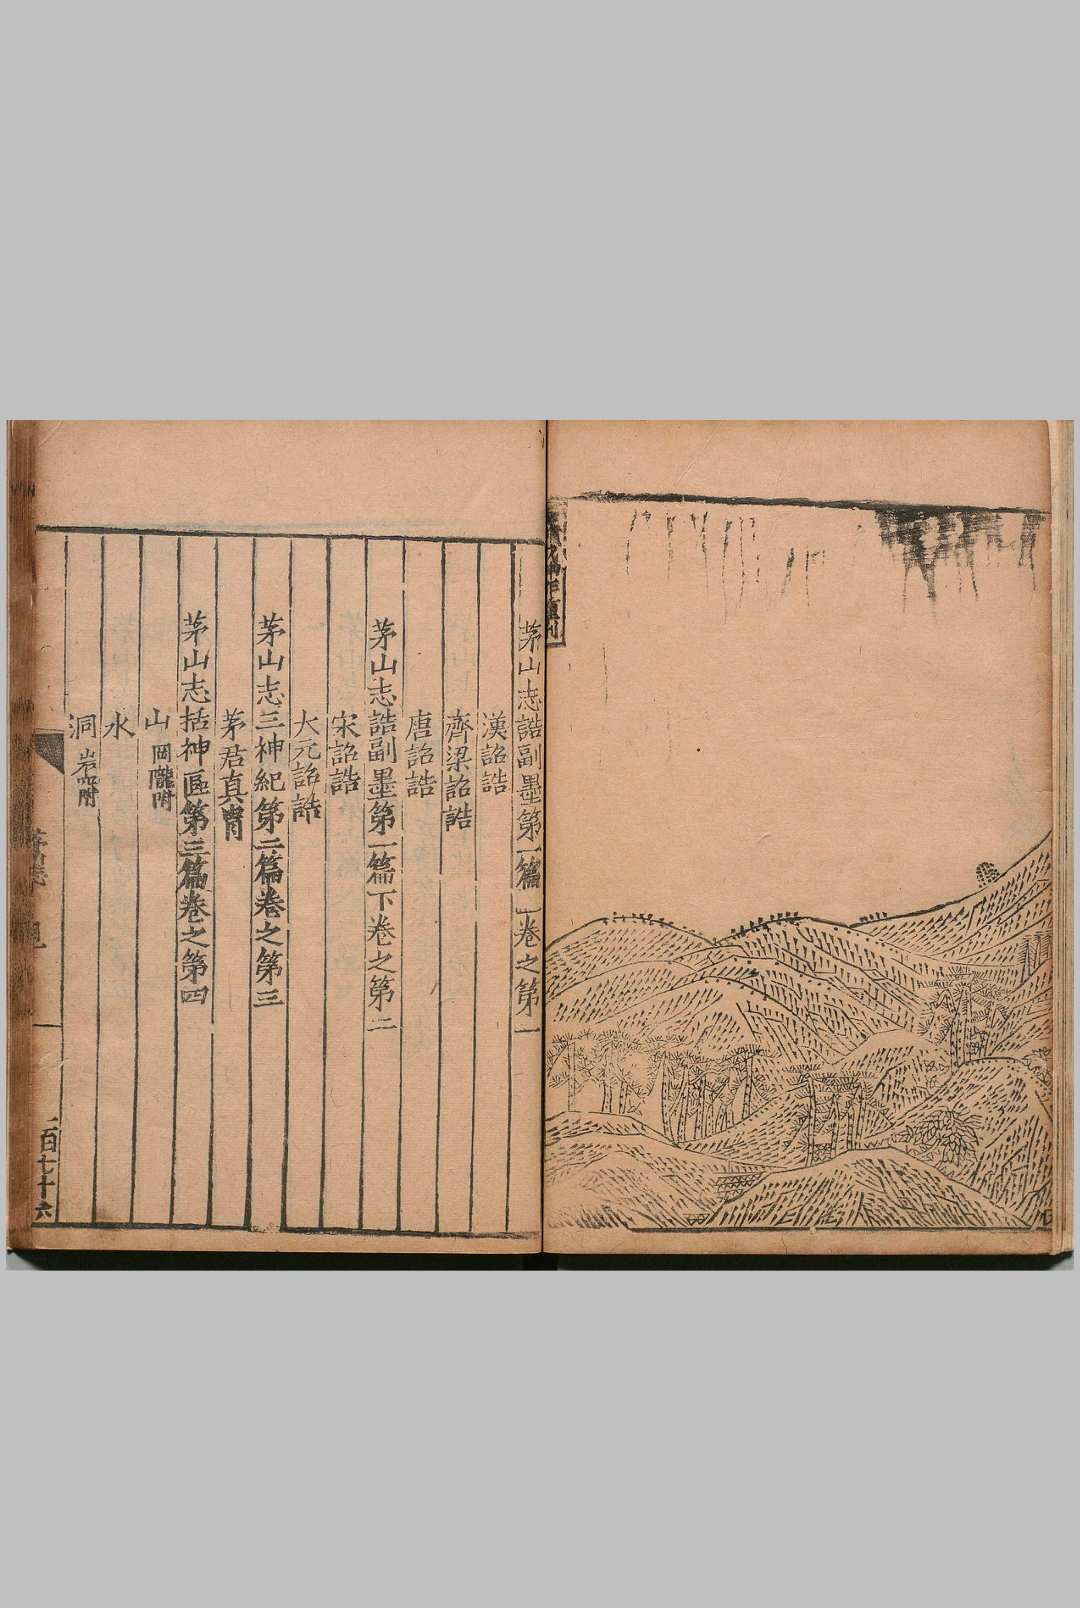 茅山志誥副墨第一篇上卷之第一
漢詔誥
齊梁詔誥
唐詔誥
茅山志誥副墨第一篇下卷之第二
宋詔誥
大元詔誥
茅山志三神紀第二篇卷之第三
茅君真冑
茅山志括神區第三篇卷之第四
山岡隴附
水
洞岩穴附
茅志
百七十六